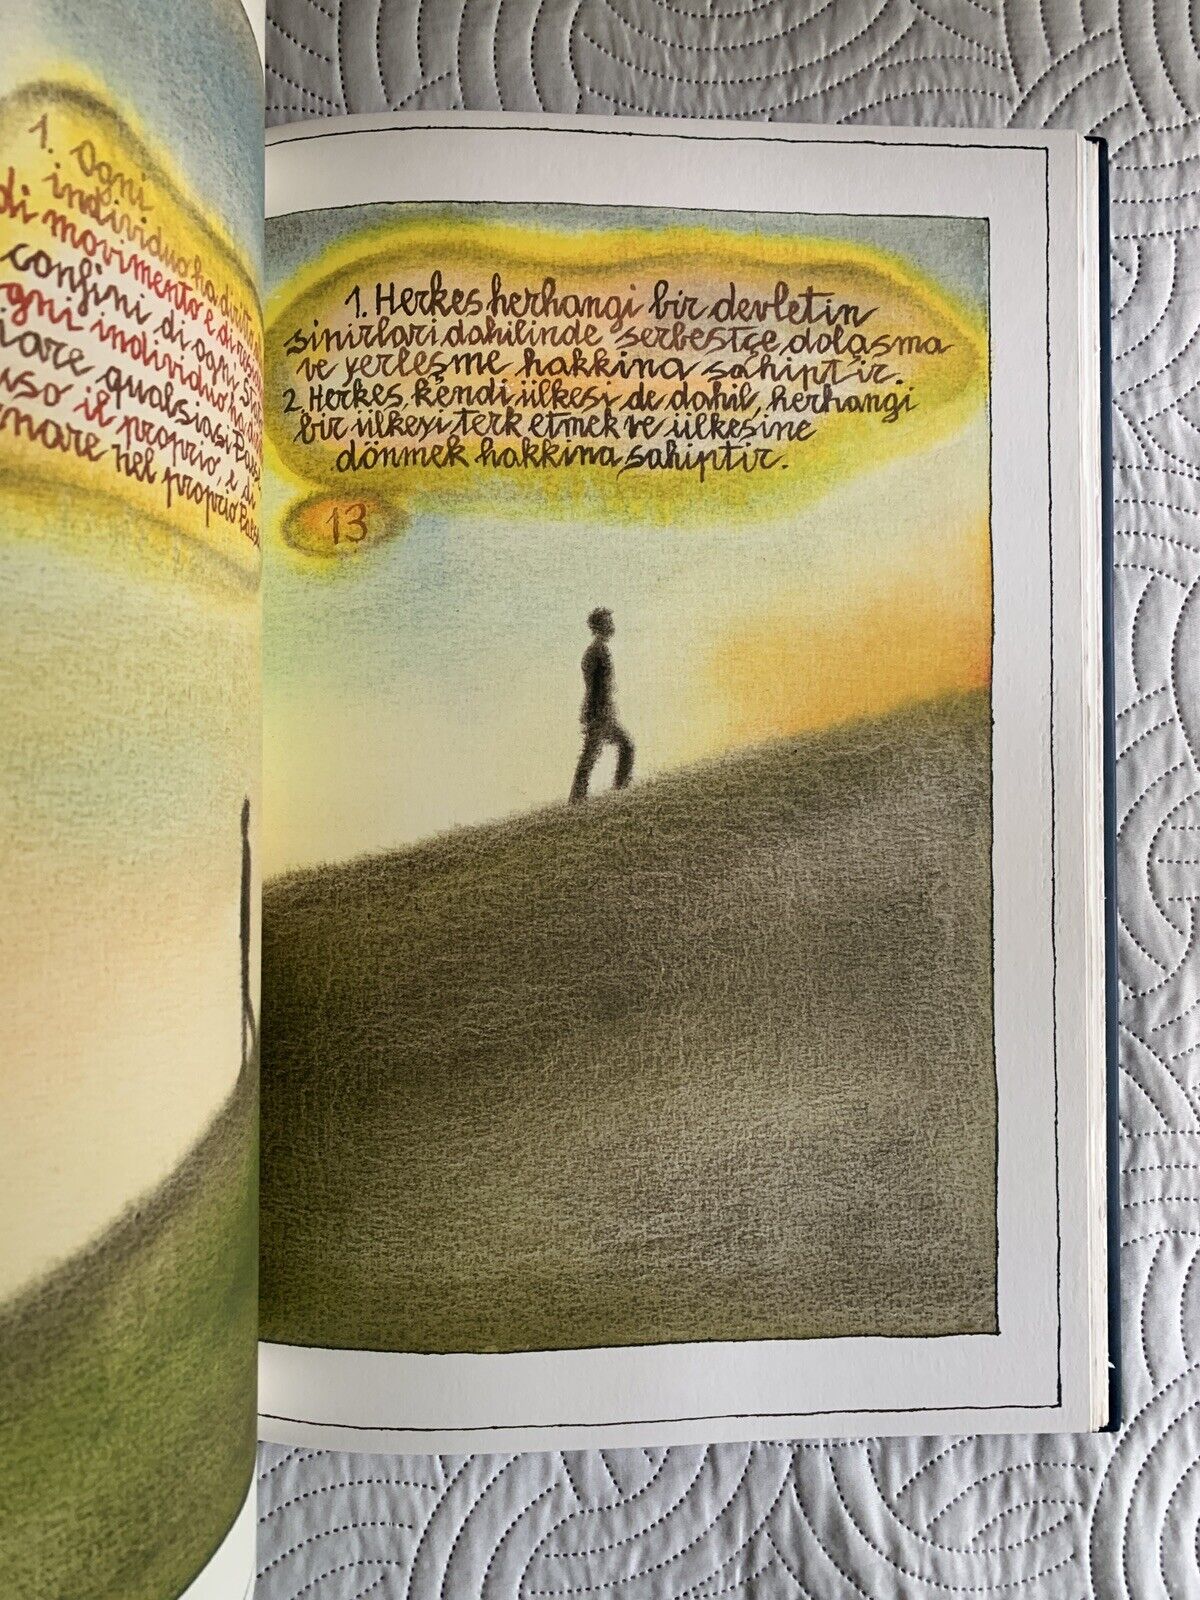 1. Ogni
individuo ha diritto
di movimento e di
confini di ogni
ogni individuo ha
qualsiasi Paese
il proprio, e di
nel proprio Paese
1. Herkes herhangi bir devletin
sinirlari dahilinde serbestçe dolaşma
ve yerleşme hakkina sahiptir.
2. Herkes kendi ülkesi de dahil, herhangi
bir ülkeyi terk etmek ve ülkesine
dönmek hakkina sahiptir.
13